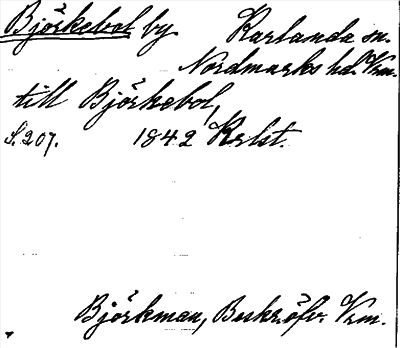 Björkebol by Karlanda sn.
Nordmarks hd. Vrm.
till Björkebol,
S. 207. 1842 Krlst.
Björkman, Beskr. öfv. Vrm.